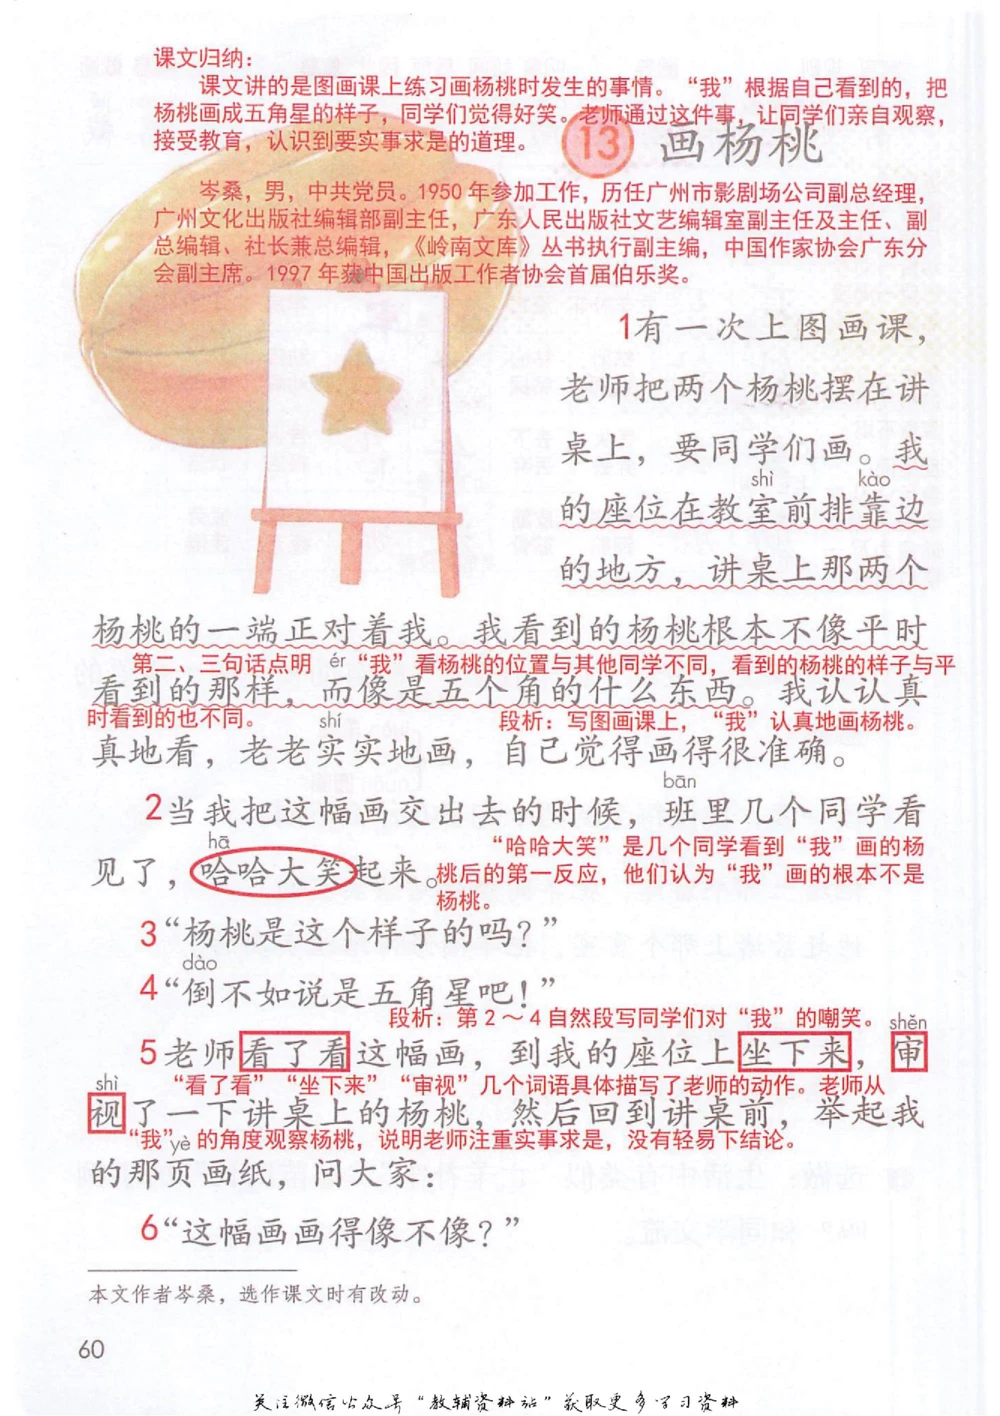 课文归纳：
课文讲的是图画课上练习画杨桃时发生的事情。“我”根据自己看到的，把
杨桃画成五角星的样子，同学们觉得好笑。老师通过这件事，让同学们亲自观察，
接受教育，认识到要实事求是的道理。
13 画杨桃
岑桑，男，中共党员。1950年参加工作，历任广州市影剧场公司副总经理，
广州文化出版社编辑部副主任，广东人民出版社文艺编辑室副主任及主任、副
总编辑、社长兼总编辑，《岭南文库》丛书执行副主编，中国作家协会广东分
会副主席。1997年获中国出版工作者协会首届伯乐奖。
1有一次上图画课，
老师把两个杨桃摆在讲
桌上，要同学们画。我
shì kào
的座位在教室前排靠边
的地方，讲桌上那两个
杨桃的一端正对着我。我看到的杨桃根本不像平时
第二、三句话点明“我”看杨桃的位置与其他同学不同，看到的杨桃的样子与平
ér
看到的那样，而像是五个角的什么东西。我认认真
时看到的也不同。
段析：写图画课上，“我”认真地画杨桃。
shí
真地看，老老实实地画，自己觉得画得很准确。
bān
2当我把这幅画交出去的时候，班里几个同学看
hā
见了，哈哈大笑起来。
“哈哈大笑”是几个同学看到“我”画的杨
桃后的第一反应，他们认为“我”画的根本不是
杨桃。
3“杨桃是这个样子的吗？”
dào
4“倒不如说是五角星吧！”
段析：第2～4自然段写同学们对“我”的嘲笑。
shěn
5老师看了看这幅画，到我的座位上坐下来，审
“看了看”“坐下来”“审视”几个词语具体描写了老师的动作。老师从
shì
视了一下讲桌上的杨桃，然后回到讲桌前，举起我
“我”的角度观察杨桃，说明老师注重实事求是，没有轻易下结论。
yè
的那页画纸，问大家：
6“这幅画画得像不像？”
本文作者岑桑，选作课文时有改动。
60
关注微信公众号“教辅资料站”获取更多学习资料